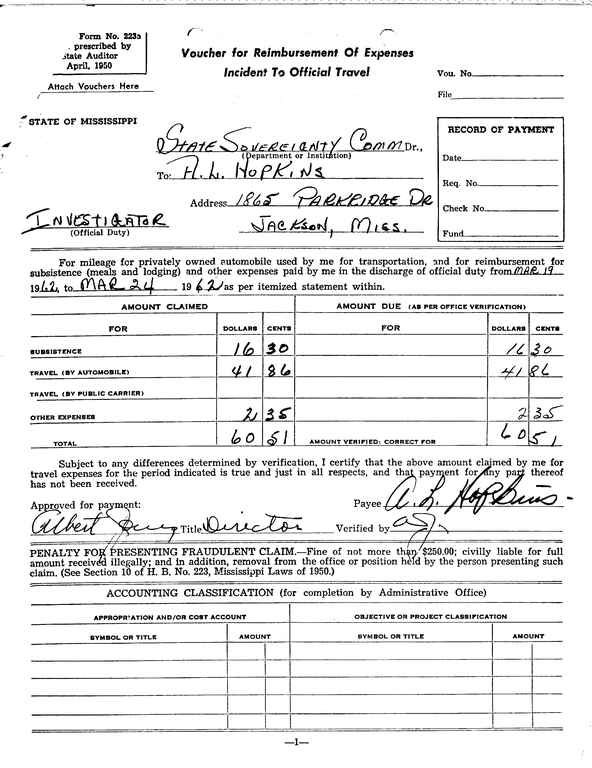 Form No. 223a
prescribed by
State Auditor
April, 1950
Attach Vouchers Here
Voucher for Reimbursement Of Expenses
Incident To Official Travel
Vou. No.
File
STATE OF MISSISSIPPI
STATE SOVEREIGNTY COMM Dr.,
(Department or Institution)
To: A.L. HOPKINS
Address 1865 PARKRIDGE DR
JACKSON, MISS.
INVESTIGATOR
(Official Duty)
RECORD OF PAYMENT
Date
Req. No.
Check No.
Fund
For mileage for privately owned automobile used by me for transportation, and for reimbursement for
subsistence (meals and lodging) and other expenses paid by me in the discharge of official duty from MAR 19
1962, to MAR 24 1962 as per itemized statement within.
AMOUNT CLAIMED AMOUNT DUE (AS PER OFFICE VERIFICATION)
FOR DOLLARS CENTS FOR DOLLARS CENTS
SUBSISTENCE 16 30 16 30
TRAVEL (BY AUTOMOBILE) 41 86 41 86
TRAVEL (BY PUBLIC CARRIER)
OTHER EXPENSES 2 35 2 35
TOTAL 60 51 AMOUNT VERIFIED: CORRECT FOR 60 51
Subject to any differences determined by verification, I certify that the above amount claimed by me for
travel expenses for the period indicated is true and just in all respects, and that payment for any part thereof
has not been received.
Approved for payment: Payee A. L. Hopkins
Albert Jones Title Director Verified by AJ
PENALTY FOR PRESENTING FRAUDULENT CLAIM.—Fine of not more than $250.00; civilly liable for full
amount received illegally; and in addition, removal from the office or position held by the person presenting such
claim. (See Section 10 of H. B. No. 223, Mississippi Laws of 1950.)
ACCOUNTING CLASSIFICATION (for completion by Administrative Office)
APPROPRIATION AND/OR COST ACCOUNT OBJECTIVE OR PROJECT CLASSIFICATION
SYMBOL OR TITLE AMOUNT SYMBOL OR TITLE AMOUNT
—1—